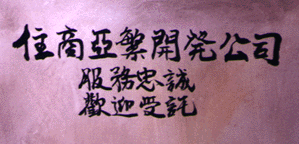 住商亞繁開発公司
服務忠誠
歡迎受託